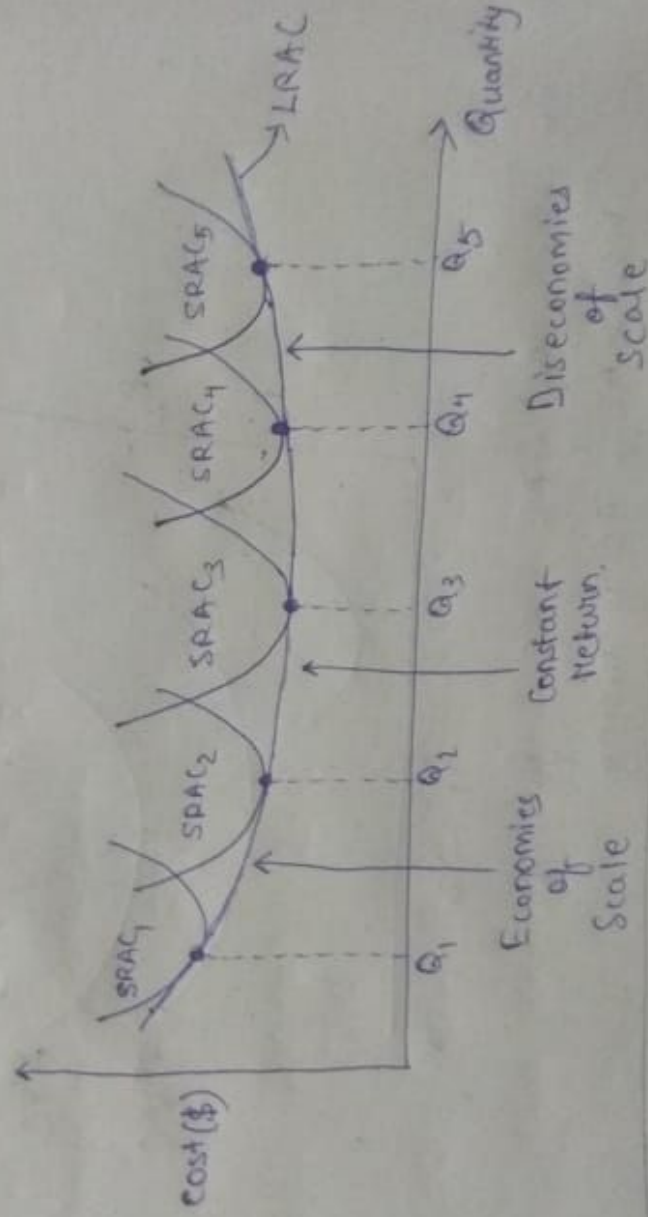 Cost ($)
SRAC1
SRAC2
SRAC3
SRAC4
SRAC5
LRAC
Q1
Q2
Q3
Q4
Q5
Quantity
Economies
of
Scale
Constant
Return.
Diseconomies
of
Scale